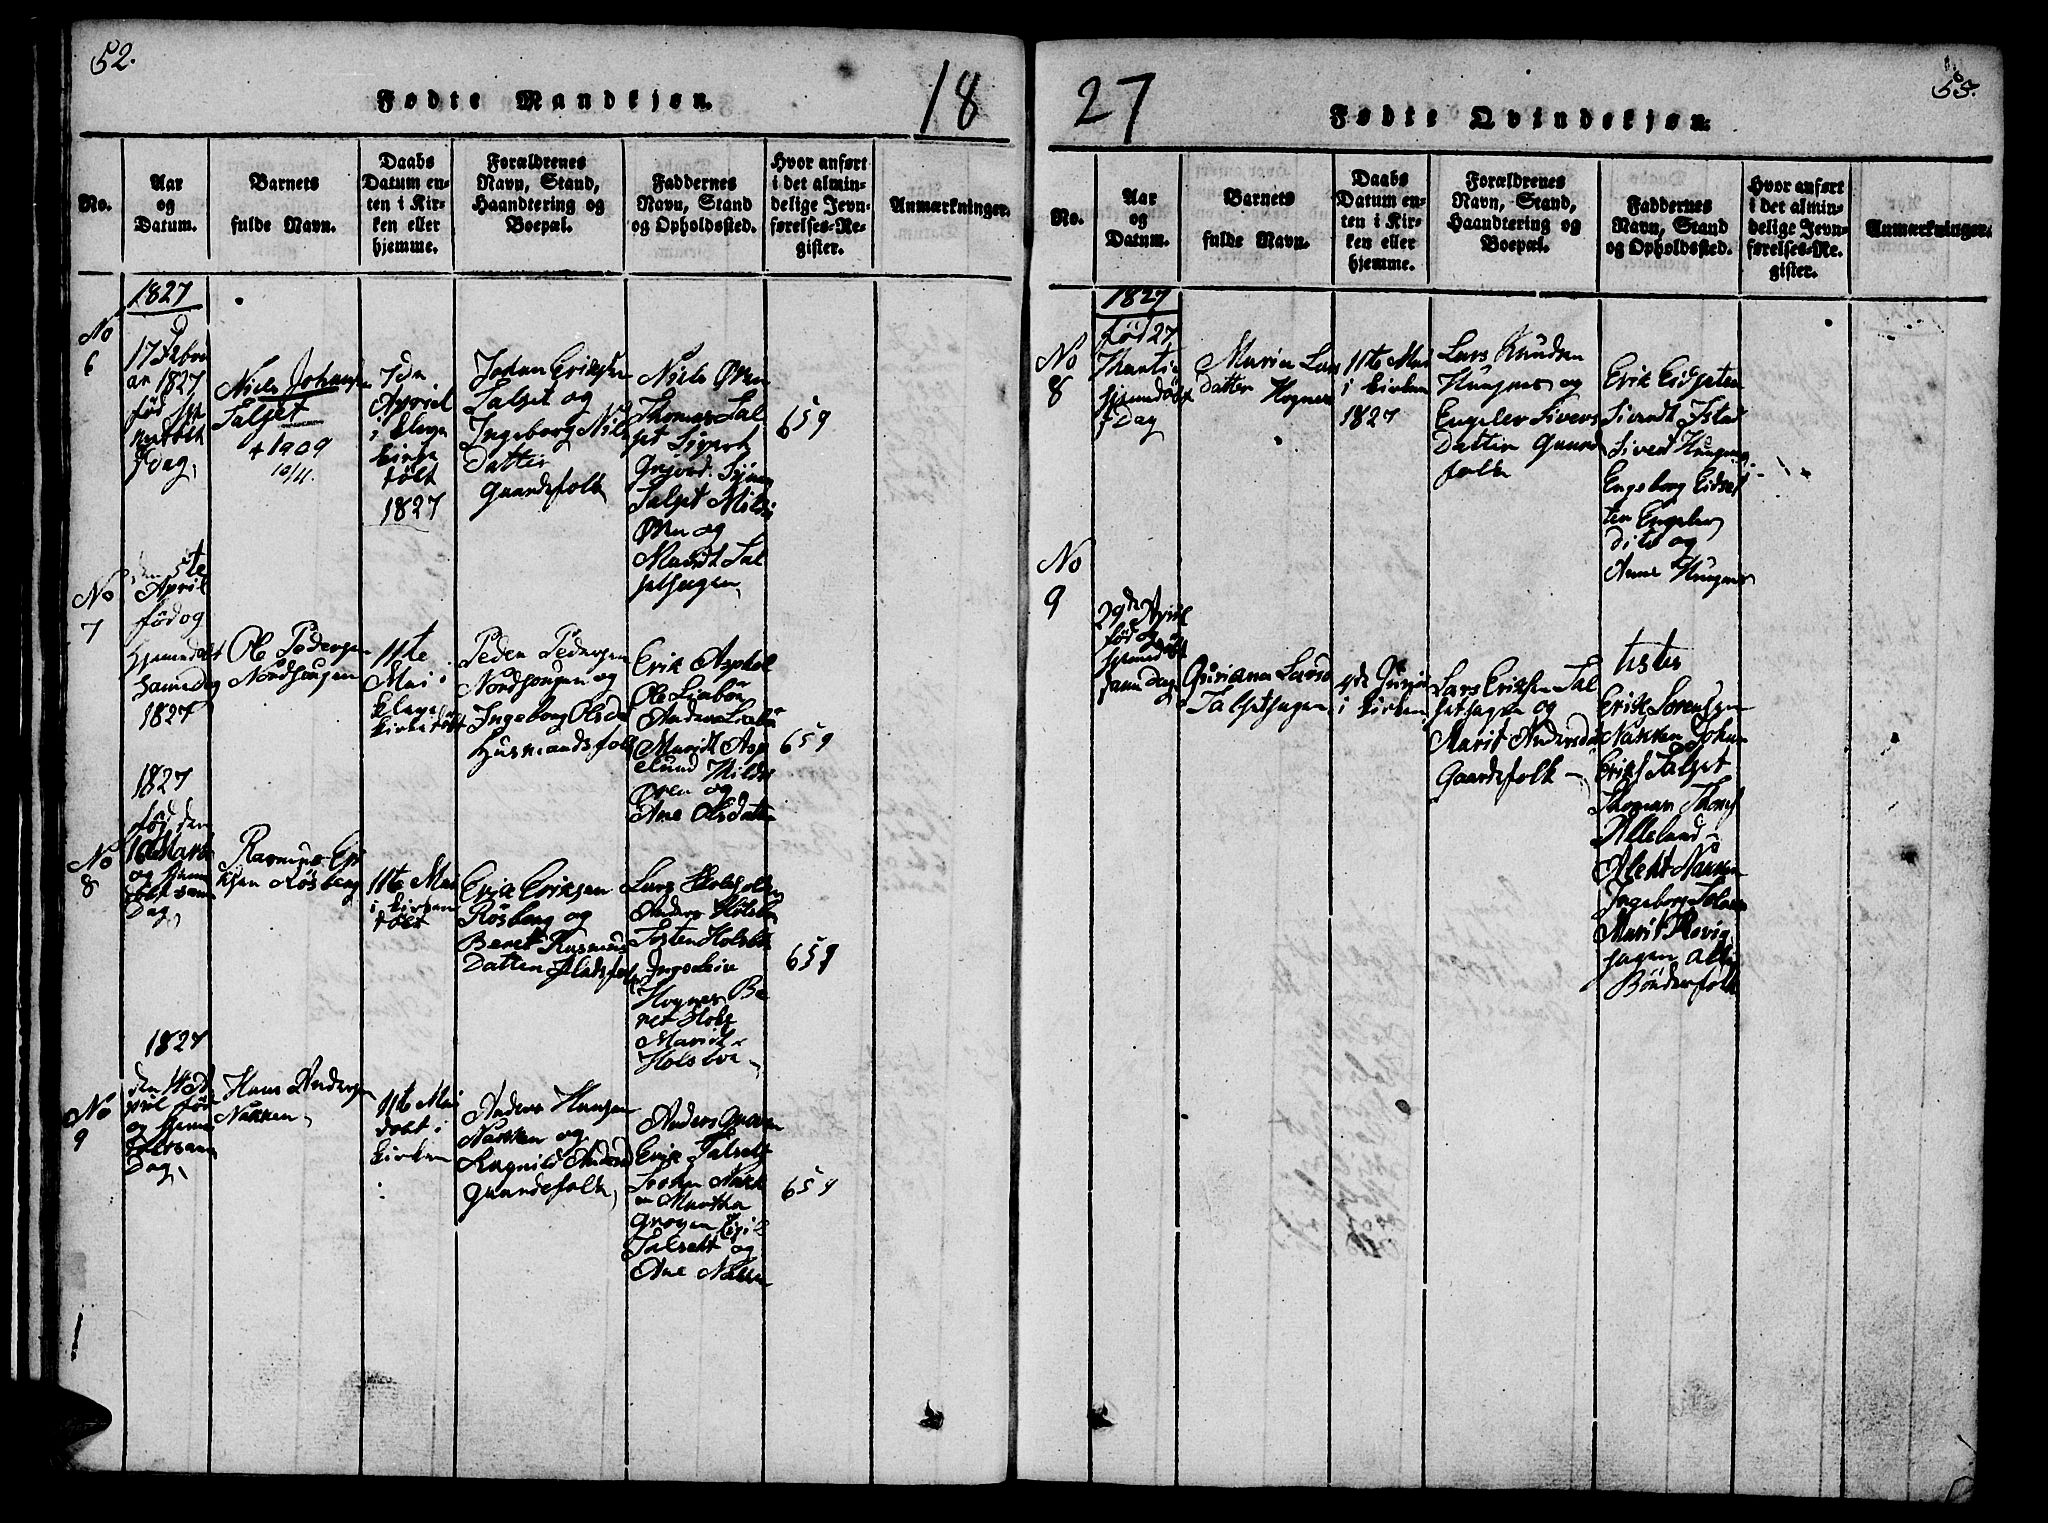 52.
Fødte Mandkjøn.
18
No.
Aar
og
Datum.
Barnets
fulde Navn.
Daabs
Datum en-
ten i Kir-
ken eller
hjemme.
Forældrenes
Navn, Stand,
Haandtering og
Boepæl.
Faddernes
Navn, Stand
og Opholdssted.
Hvor anført
i det almin-
delige Jevn-
førelses-Re-
gister.
Anmærkninger.
1827
No
6
an 1827
fød
Dag,
Niels Johansen
Talset
+ 1909
10/11.
Apriel
døbt
1827
Johan Eriksen
Talset og
Ingeborg Niels
Datter
Gaardefolk
Niels Øren
Thomas Tal
set Sivert
Talset Mildri
Øren og
Maridt Tal
sethagen,
659
No
7
den 5te
April
fød og
hjemedøbt
same Dag
1827
Ole Pedersen
Nordhougen
11te
Mai i
Peder Pedersen
Nordhougen og
Ingeborg Olsdat
Husmandsfolk
Erik Asphol
Ole Liabøe
Anders Liabøe
Maridt Asp
elund Mildri
Øren og
Ane Olsdatter
659
1827
fød den
No
8
16de Marti
og hjem
døbt sam
Dag,
Rasmus Eri
ksen Røsberg
11te Mai
i kirken
døbt
Erik Eriksen
Røsberg og
Beret Rasmus
Datter Pladsfolk
Lars
Anders Holsbø
Tosten Holsbø
Ingeleiv
Hognes Be
ret Hols
Marit
Holsbøe
659
1827
No
9
den 14de A
pril fød
og hjeme
døbt sam
Dag,
Hans Andersen
Nakken,
11te Mai
døbt i
kirken
Anders Hansen
Nakken og
Ragnild Andersd
Gaardefolk,
Anders Groven
Erik Talset
Johan Nakk
en Martha
Groven
Talsett og
Ane Nakken
659
27
Fødte Qvindekjøn.
55.
No.
Aar
og
Datum.
Barnets
fulde Navn.
Daabs
Datum en-
ten i Kir-
ken eller
hjemme.
Forældrenes
Navn, Stand,
Haandtering og
Boepæl.
Faddernes
Navn, Stand
og Opholdssted.
Hvor anført
i det almin-
delige Jevn-
førelses-Re-
gister.
Anmærkninger.
1827
No
8
fød 27
Martii
hjemdøbt
s Dag
Maria Lars
Datter Hognes
11te Mai
i kirken
1827
Lars Knudsen
Hougnes og
Engeler Sivers
Datter Gaard
folk
Erik Eidseten
Sivendt Istad
Sivert Hougnes
Engeborg Eidset
ten Engeler
dito og
Anne Hougnes
No
9
29de April
fød og
hjemdøbt
sam Dag
Guriana Larsd
Talsethagen
4de Juni
i kirken
Lars Eriksen Tal
sethagen og
Marit Andersdat
Gaardefolk
testes
Erik Sorensen
Nakken Johan
Eriks Talset
Thomas Thoms
Alleland
Nakken
Ingeborg Talset
Marit Rovig
hagen alle
Bønderfolk